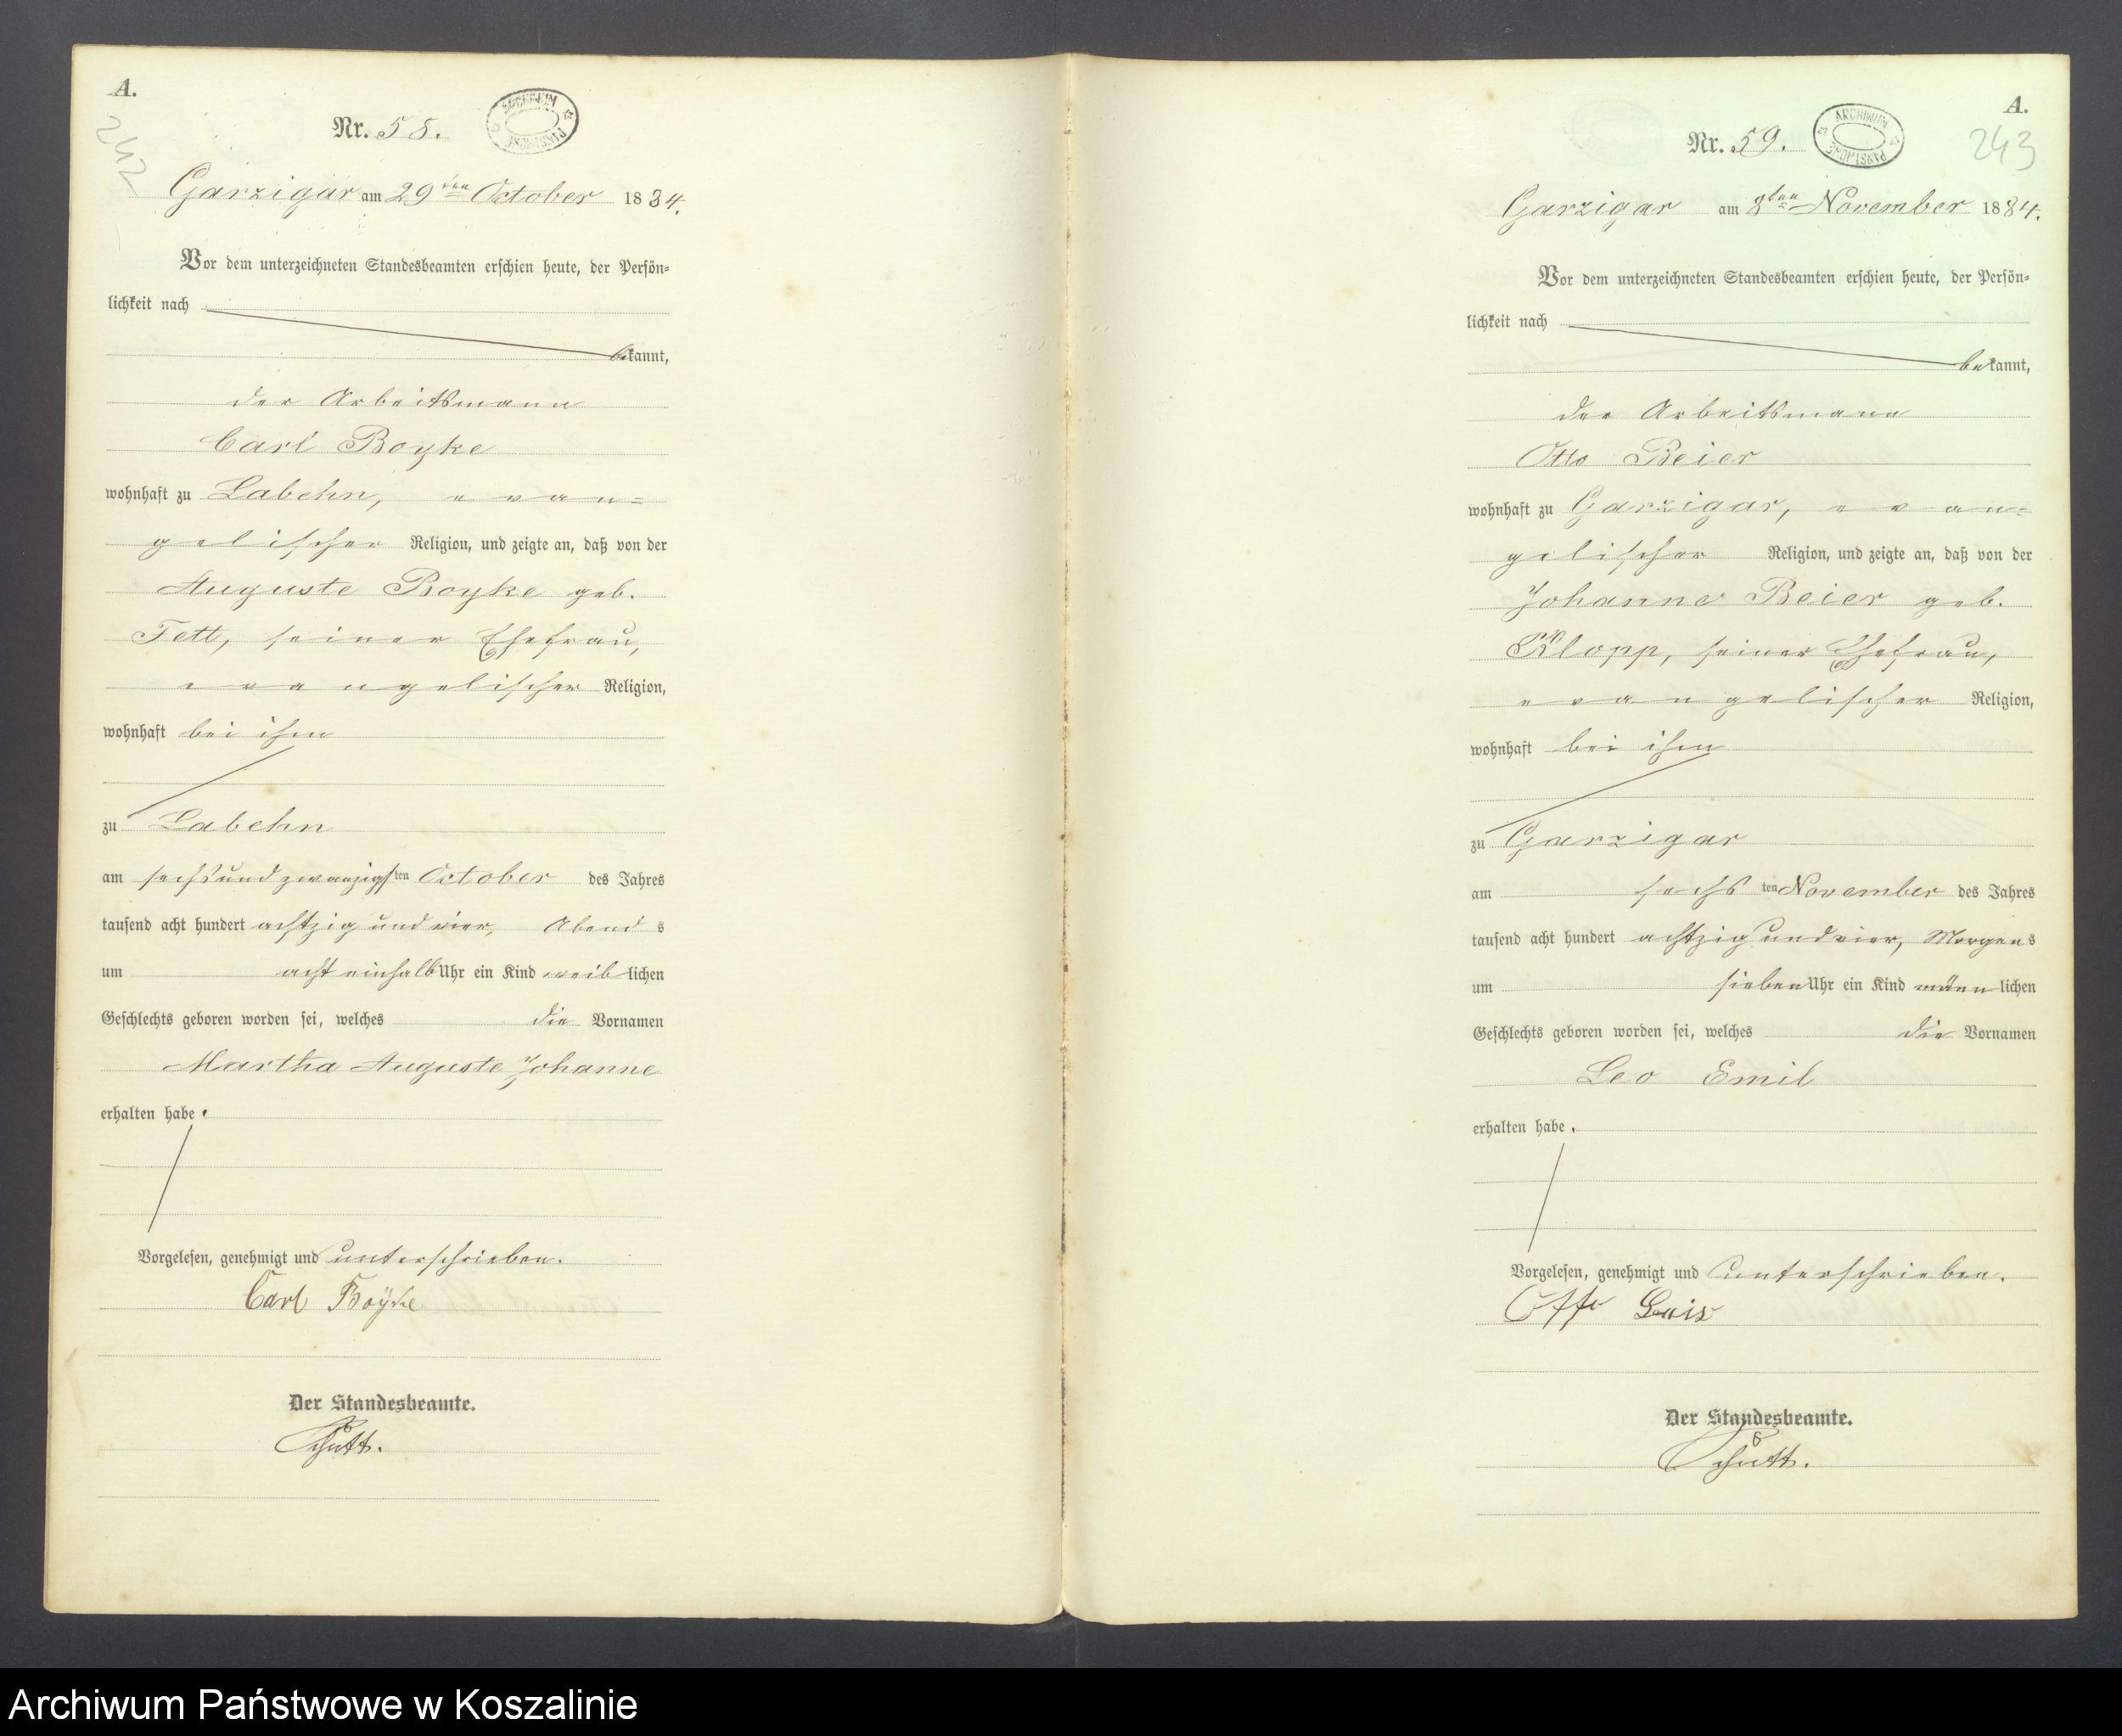 A.
242
Nr. 58.
ARCHIWUM PAŃSTWOWE
Garzigar am 29ten October 1884.
Vor dem unterzeichneten Standesbeamten erschien heute, der Persön-
lichkeit nach
bekannt,
der Arbeitsmann
Carl Boyke
wohnhaft zu Labehn, evan-
gelischer Religion, und zeigte an, daß von der
Auguste Boyke geb.
Tett, seiner Ehefrau,
evangelischer Religion,
wohnhaft bei ihm
zu Labehn
am sechsundzwanzigsten October des Jahres
tausend acht hundert achtzig und vier, Abends
um acht einhalb Uhr ein Kind weiblichen
Geschlechts geboren worden sei, welches die Vornamen
Martha Auguste Johanne
erhalten habe.
Vorgelesen, genehmigt und unterschrieben.
Carl Boyke
Der Standesbeamte.
Schütt.
A.
243
Nr. 59.
ARCHIWUM PAŃSTWOWE
Garzigar am 8ten November 1884.
Vor dem unterzeichneten Standesbeamten erschien heute, der Persön-
lichkeit nach
bekannt,
der Arbeitsmann
Otto Beier
wohnhaft zu Garzigar, evan-
gelischer Religion, und zeigte an, daß von der
Johanne Beier geb.
Klopp, seiner Ehefrau,
evangelischer Religion,
wohnhaft bei ihm
zu Garzigar
am sechsten November des Jahres
tausend acht hundert achtzig und vier, Morgens
um sieben Uhr ein Kind männlichen
Geschlechts geboren worden sei, welches die Vornamen
Leo Emil
erhalten habe.
Vorgelesen, genehmigt und unterschrieben.
Otto Beier
Der Standesbeamte.
Schütt.
Archiwum Państwowe w Koszalinie